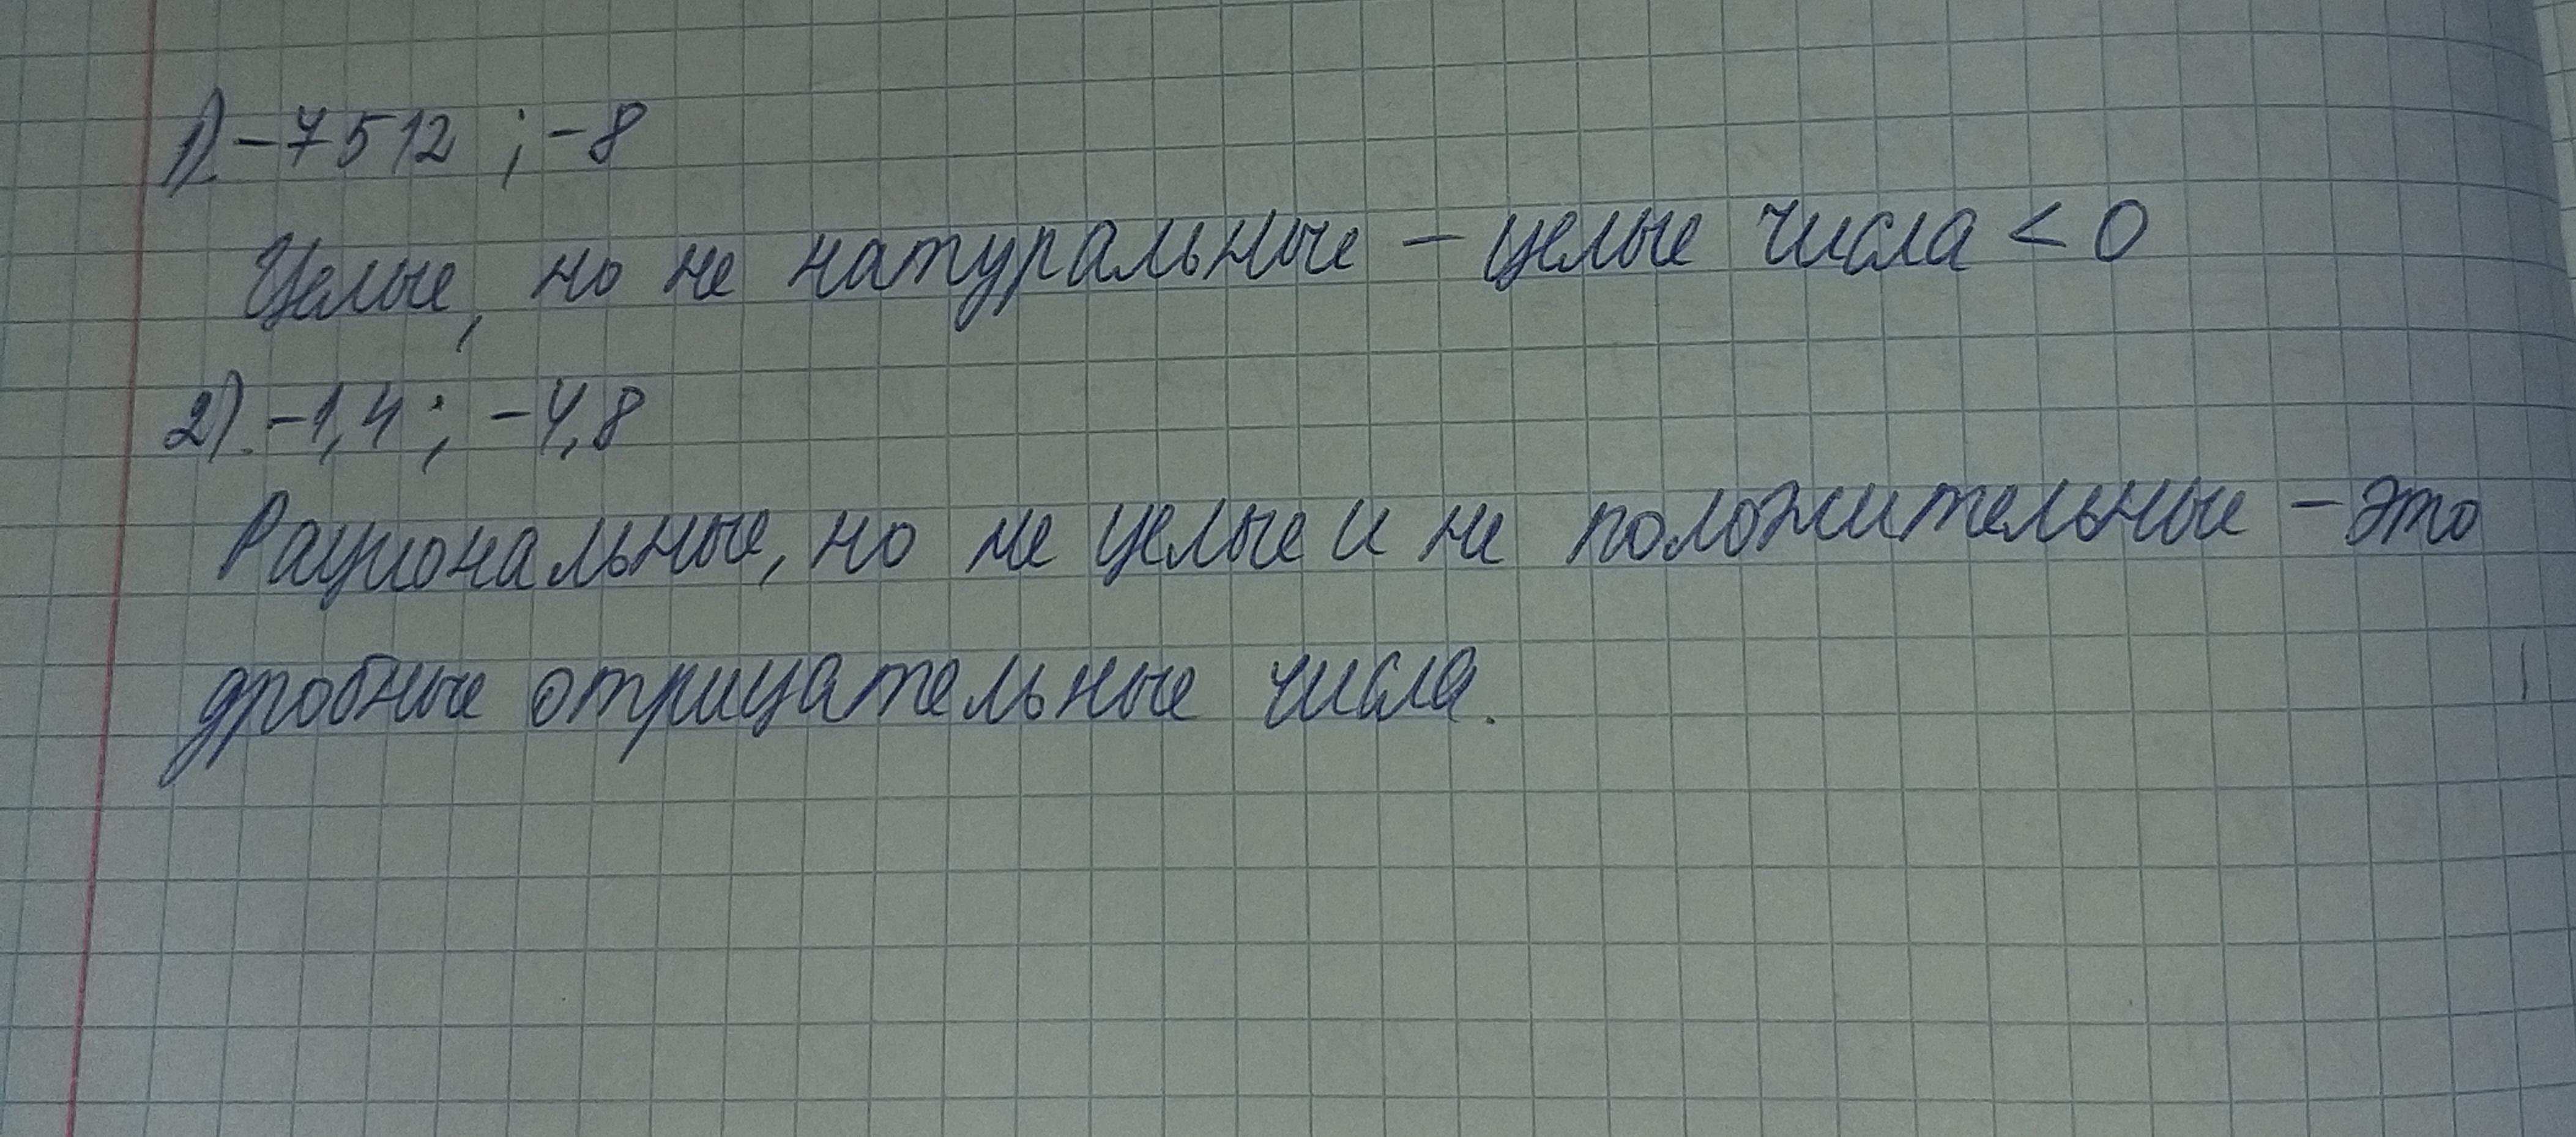 1).-7512 ; -8
Целые, но не натуральные - целые числа < 0
2).-1,4 ; -4,8
Рациональные, но не целые и не положительные - это
дробные отрицательные числа.